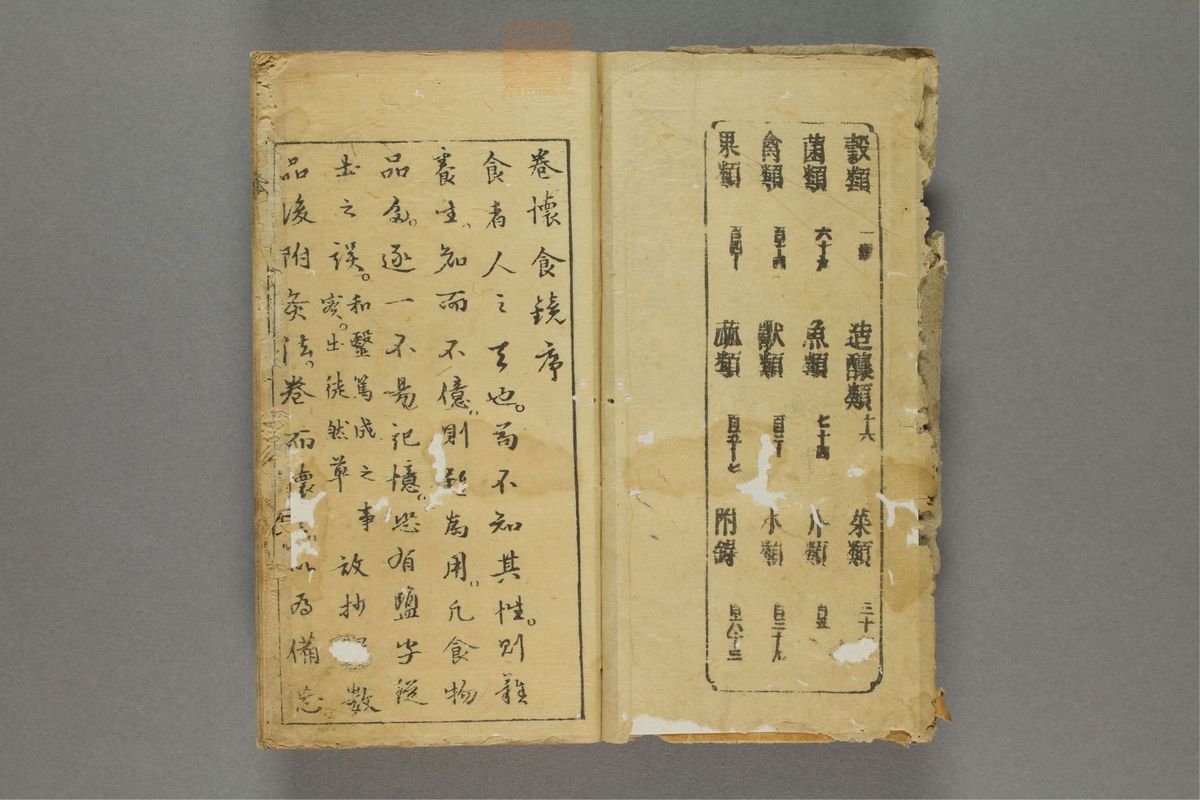 穀類 一 造釀類 十六 菜類 三十
菌類 六十九 魚類 七十四 介類 百五
禽類 百十四 獸類 類 百三十九
果類 百四十 蔬類 百五十七 附録 百六十三
卷懷食鏡序
食者人之天也。苟不知其性。則難
養生。知而不億。則難為用。凡食物
品多。逐一不易記憶。恐有鹽字從
土之誤。和醫篤成之事
実。出徒然草
故抄數
品後附灸法。卷而懷以為備忘。